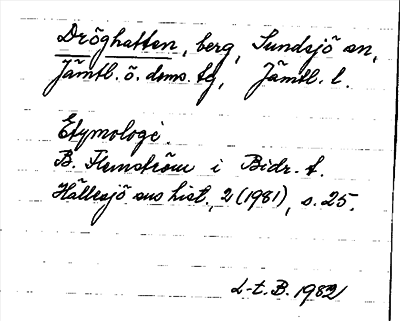 Dröghatten, berg, Sundsjö sn,
Jämtl. ö. doms. tg, Jämtl. l.
Etymologi.
B. Flemström i Bidr. t.
Hällesjö sns hist., 2 (1981), s. 25.
L-t. B. 1982